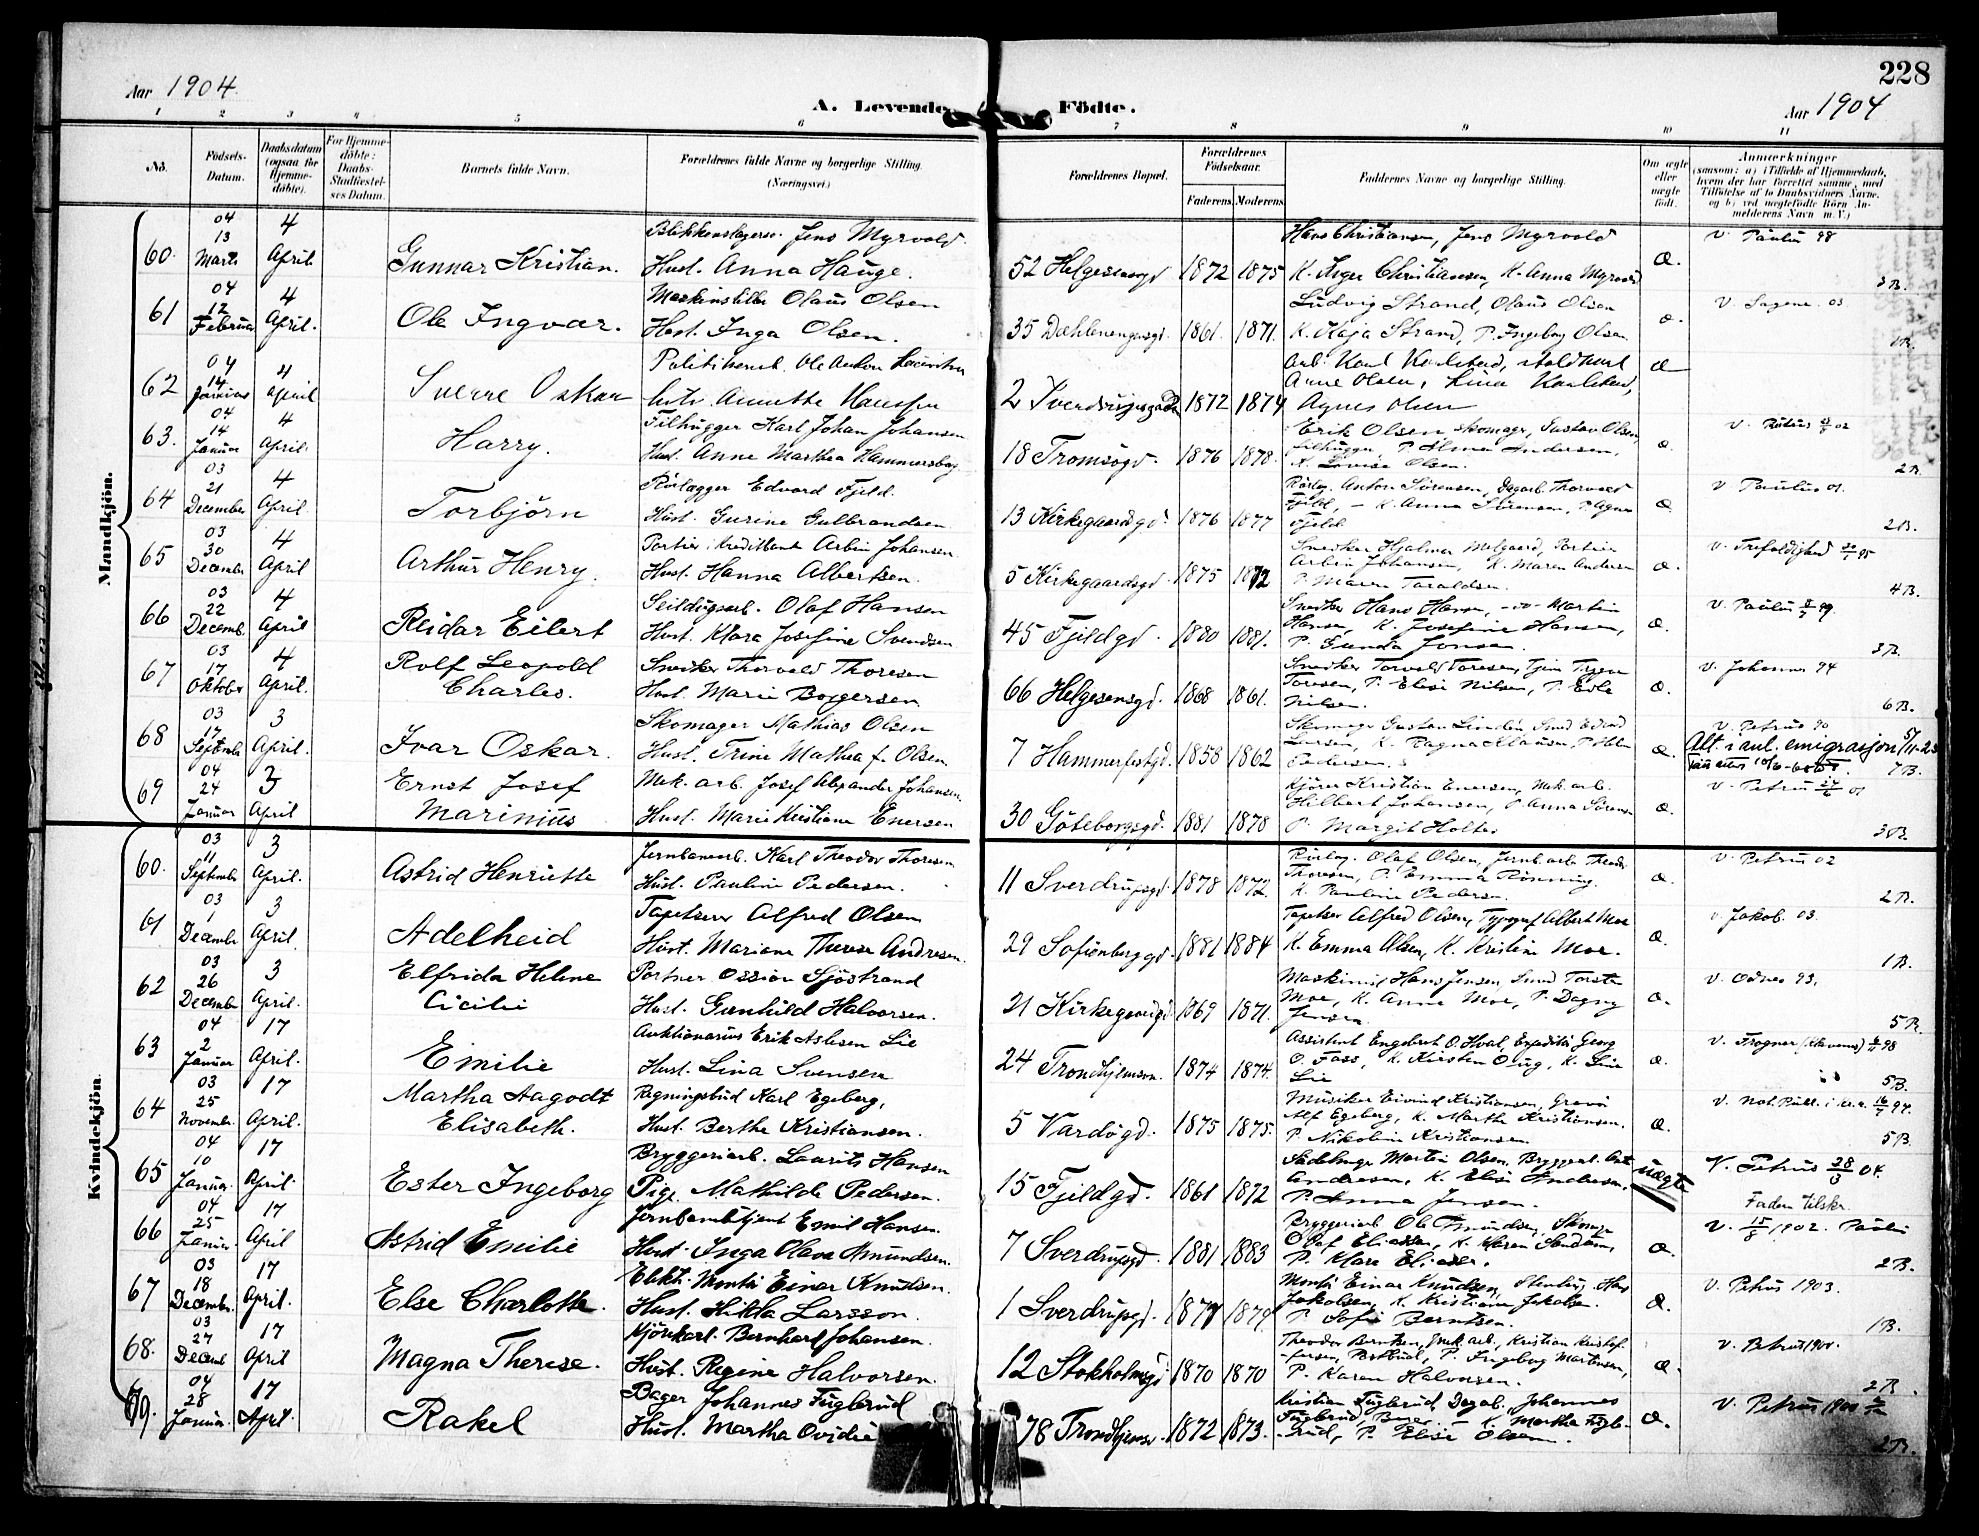 228
Aar 1904
A. Levende Födte.
Aar 1904
1 2 3 4 5 6 7 8 9 10 11
No. Födsels-Datum. Daabsdatum (ogsaa for Hjemmedöbte). For Hjemmedöbte: Daabs-Stadfæstelses Datum. Barnets fulde Navn. Forældrenes fulde Navne og borgerlige Stilling. (Næringsvei.) Forældrenes Bopæl. Forældrenes Födselsaar. Faderens. Moderens. Faddernes Navne og borgerlige Stilling. Om ægte eller uægte födt. Anmærkninger (saasom: a) i Tilfælde af Hjemmedaab, hvem der har forrettet samme, med Tilföielse af to Daabsvidners Navne, og b) ved uægtefödte Börn Anmelderens Navn m. V.)
Mandkjön.
60. 04 13 Marts 4 April. Gunnar Kristian. Jens Myrvold. Hust. Anna Hauge. 52 Helgesensgd 1872 1875 Hans Christiansen, Jens Myrvold K. Inger Christiansen, K. Anna Myrvold æ. v. Paulus 98 3 B.
61 04 12 Februar 4 April. Ole Ingvar. Olaus Olsen Hust. Inga Olsen. 35 Dælenengensgd. 1861. 1871. Ludvig Strand, Olaus Olsen K. Kaja Strand, P. Ingeborg Olsen æ. v. Sagene 03
62 04 14 Januar 4 April Sverre Oskar Ole Anton Annette Hansen 2 Sverdrupsgade 1872 1874 Agnes Olsen æ
63. 04 14 Januar 4 April. Harry. Filhugger Karl Johan Johansen Hust. Anne Marthea Hammersborg 18 Tromsögd. 1876 1878. Erik Olsen skomager, Gustav Olsen filhugger, Andersen, K. Lovise Olsen. æ. 2 B.
64 03 21 December 4 April. Torbjörn Rörlægger Edvard Fjeld. Hust. Gurine Gulbrandsen 13 Kirkegaardsgd. 1876 1877 Anton Sörensen, Thorvald Fjeld, – K. Anna Sörensen, P. Agnes Fjeld æ v Paulus 01. 2 B.
65 03 30 December 4 April Arthur Henry. Arbin Johansen. Hust. Hanna Albertsen. 5 Kirkegaardsgd. 1875 1872 Snedker Hjalmar Melgaard, Portier Arbin Johansen, K. Maren Andersen P. Maren Taraldsen. æ. v. Trefoldighed 95 4 B.
66 03 22 Decemb. 4 April Reidar Eilert Seildugsarb. Olaf Hansen Hust. Klara Josefine Svendsen 45 Fjeldgd. 1880 1881. Snedker Hans Hansen, Martin Hansen, K. Josefine Hansen, P. Gunda Jonsen. æ. v. Paulus 99. 3 B.
67 03 17 Oktober 4 April. Rolf Leopold Charles. Snedker Thorvald Thoresen Hust. Marie Borgersen 66 Helgesensgd. 1868 1861. Snedker Torvald Toresen, Toresen, P. Elise Nilsen, P. Nilsen. æ. v. Johannes 94 6 B.
68 03 17 September 3 April. Ivar Oskar. Skomager Mathias Olsen Hust. Trine Mathea f. Olsen. 7 Hammerfestgd. 1858 1862 Larsen, K. Ragna Klausen æ. v. Petrus 90 Att. i anl. emigrasjon 7 B.
69 04 24 Januar 3 April Ernst Josef Marinius Mek. arb. Josef Alexander Johansen. Hust. Marie Kristiane Enersen 30 Göteborggd. 1881 1878 Kjörer Kristian Enersen, Mek. arb. Hilbert Johansen, P. Anna Sörensen P. Margit Holter æ. v. Petrus 01 3 B.
Kvindekjön.
60. 03 11 September 3 April. Astrid Henriette Jernbanearb. Karl Theodor Thoresen Hust. Pauline Pedersen. 11 Sverdrupsgd. 1878 1872. Olaf Olsen, Jernb. arb. Theodor Thoresen, P. Emma Rönning. K. Pauline Pedersen æ. v. Petrus 02 2 B.
61 03 1 December 3 April. Adelheid Tapetserer Alfred Olsen Hust. Mariane Therese Andresen. 29 Sofienberggd. 1881 1884 Tapetser Alfred Olsen, Typograf Albert Moe K. Emma Olsen, K. Kristine Moe. æ. v. Jakob. 03. 1 B.
62 03 26 December 3 April. Elfrida Helene Cicilie Portner Ossian Sjöstrand Hust. Gunhild Halvorsen. 21 Kirkegaardsgd 1869 1871. Hans Jensen, Smed Torste Moe, K. Anna Moe, P. Dagny Jensen æ. 93. 5 B.
63 04 2 Januar 17 April. Emilie Auktionarius Erik Aslesen Lie Hust. Lina Svensen 24 Trondhjemsv. 1874 1874. Assistent Engebret O. Hval, Georg O. Foss, K. Kirsten K. Lina Lie æ. v. Frogner 98 5 B.
64 03 25 November 17 April. Martha Aagodt Elisabeth. Regningsbud Karl Egeberg, Hust. Berthe Kristiansen. 5 Vardögd. 1875 1875. Musiker Eivind Kristiansen, Gravör Alf Egeberg, K. Marthe Kristiansen. P. Nikoline Kristiansen æ. 5 B.
65 04 10 Januar. 17 April. Ester Ingeborg Bryggeriarb. Laurits Hansen Pige Mathilde Pedersen. 15 Fjeldgd. 1861 1872 Martin Olsen, Andresen, K. Elise Andresen, P. Anna Jensen. uægte V. Petrus 28/3 04. Faderen tilskr.
66 04 25 Januar. 17 April Astrid Emilie Jernbanebetjent Emil Hansen. Hust. Inga Olava Amundsen. 7 Sverdrupsgd. 1881 1883 Bryggeriarb Ole Amundsen, Olaf Eliassen, P. Klara Eliassen. æ. V. 15/5 1902. Paulus 2 B.
67 03 18 December. 17 April. Else Charlotte. Elekt. Montör Einar Knudsen. Hust. Hilda Larsson. 1 Sverdrupsgd. 1879 Montör Einar Knudsen, Hans Jakobsen, K. Kristiane Jakobsen. P. Sofie Berntsen. æ. V. Petrus 1903. 1 B.
68. 03 27 Decemb 17 April Magna Therese. Kjörekarl. Bernhard Johansen. Hust. Regine Halvorsen. 12 Stokholmsgd 1870 1870 Theodor Berntsen, Kristian Kristoffersen, Postbud, P. Ingeborg Martensen, P. Karen Halvorsen. æ. v. Petrus 1900. 2 B.
69. 04 28 Januar. 17 April. Rakel Bager Johannes Fuglerud Hust. Martha Ovidie 78 Trondhjemsv. 1872 1873. Kristian Fuglerud, Johannes Fuglerud, Bager. – K. Martha Fuglerud, P. Elise Olsen. æ. V. Petrus 1900 2 B.